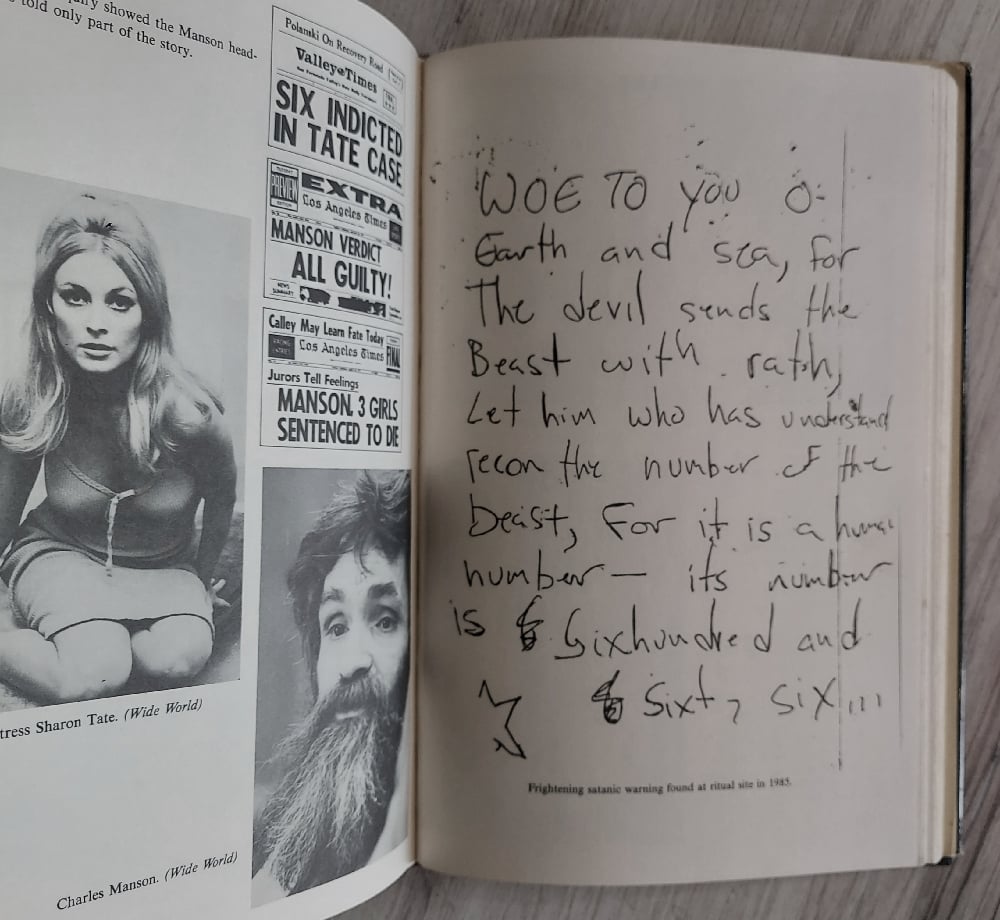 showed the Manson head-
told only part of the story.
Polanski On Recovery Road
Valley Times
SIX INDICTED
IN TATE CASE
PREVIEW
EXTRA
Los Angeles Times
MANSON VERDICT
ALL GUILTY!
Calley May Learn Fate Today
Los Angeles Times
FINAL
Jurors Tell Feelings
MANSON, 3 GIRLS
SENTENCED TO DIE
tress Sharon Tate. (Wide World)
Charles Manson. (Wide World)
WOE TO YOU O-
Earth and sea, for
The devil sends the
Beast with rath,
Let him who has understand
recon the number of the
beast, For it is a human
number — its number
is Sixhundred and
Sixty six...
Frightening satanic warning found at ritual site in 1985.